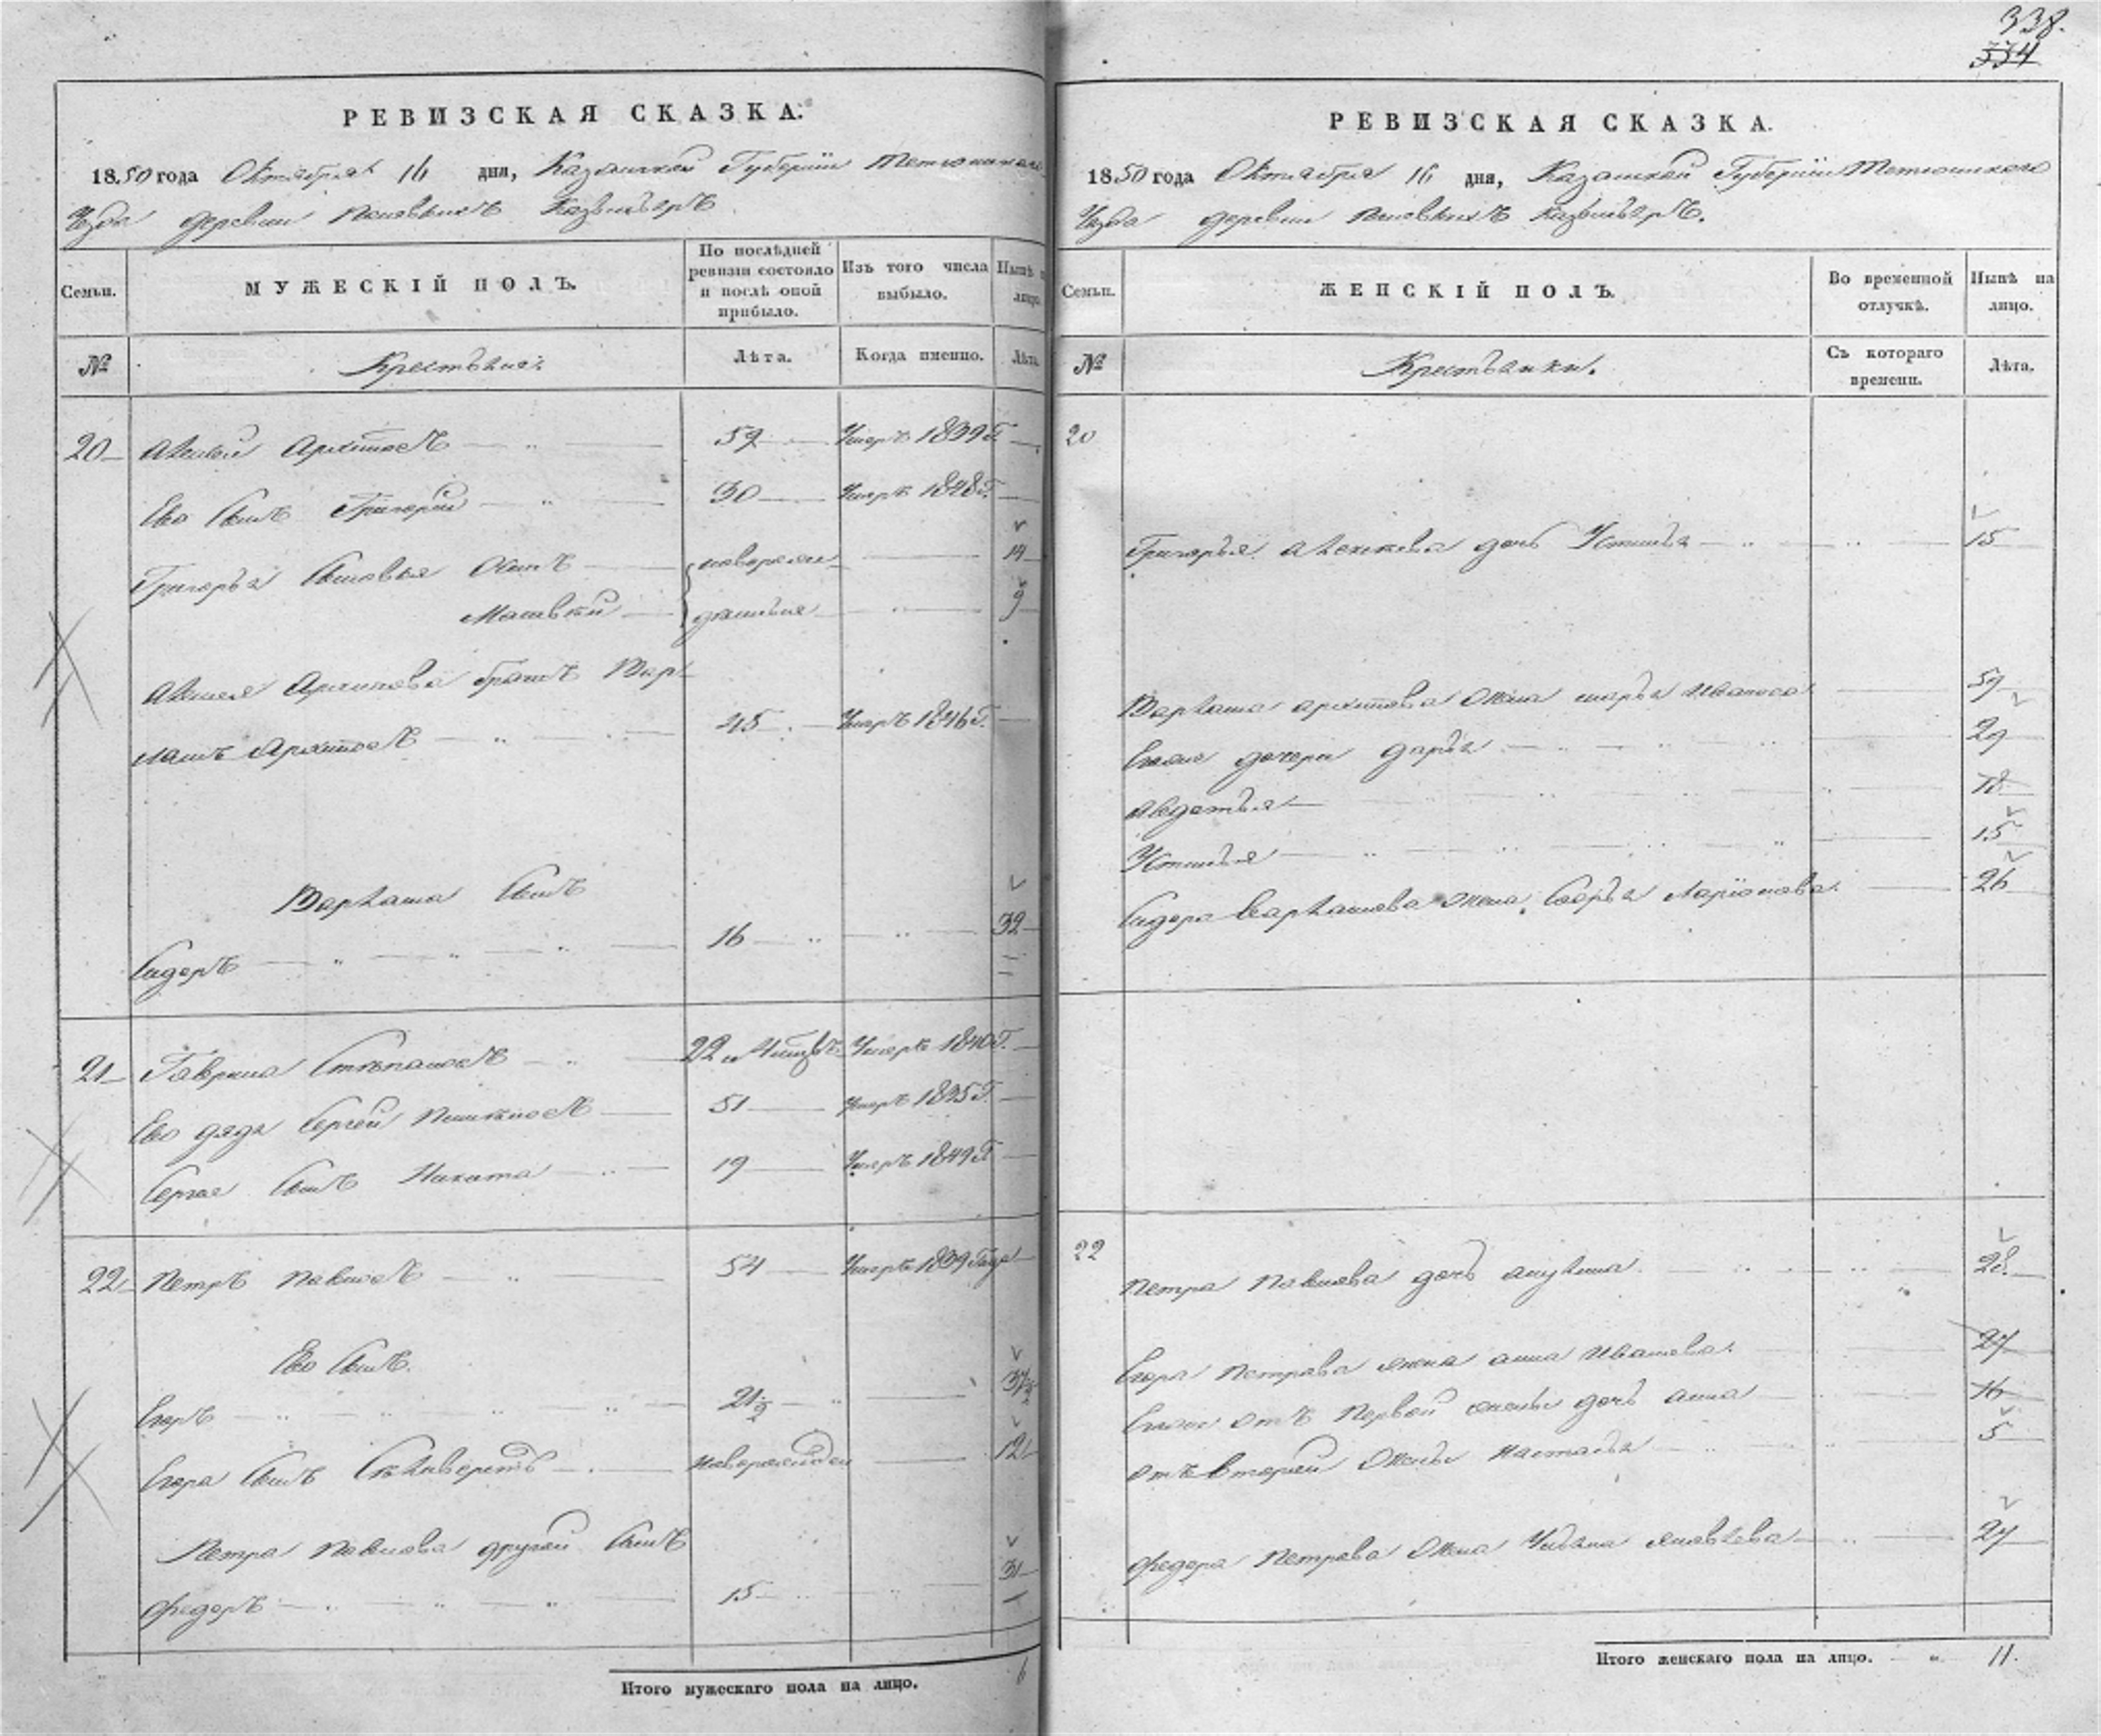 338.
334
РЕВИЗСКАЯ СКАЗКА.
1850 года Октября 16 дня, Казанской Губернiи Тетюшскаго
Уезда деревни
МУЖЕСКIЙ ПОЛЪ.
Семьи.
По послѣдней ревизiи состояло и послѣ оной прибыло.
Изъ того числа выбыло.
Нынѣ на лицо.
№
Крестьяне
Лѣта.
Когда именно.
Лѣта.
20 Архипов 59 Умеръ 1839 Г.
Ево сынъ Григорей 30 Умеръ 1848 Г.
Григорья сыновья новорож 14
денные 9
Архипова братъ Вар
ламъ Архиповъ 45 Умеръ 1846 Г.
Варлама сынъ
Сидоръ 16 32
21 Гаврила Степановъ 22 Умеръ 1840 Г.
Ево дядя Сергей 51 Умеръ 1835 Г.
Сергея сынъ Никита 19 Умеръ 1849 Г
22 Петръ Павловъ 54 Умеръ 1839 Года
Ево сынъ.
Егоръ 21½ 37½
Егора сынъ новорожден 12
Петра Павлова другой сынъ
Федоръ 15 31
Итого мужескаго пола на лицо. 6
РЕВИЗСКАЯ СКАЗКА.
1850 года Октября 16 дня, Казанской Губернiи Тетюшскаго
Уезда деревни
Семьи.
ЖЕНСКIЙ ПОЛЪ.
Во временной отлучкѣ.
Нынѣ на лицо.
№
Крестьянки.
Съ котораго времени.
Лѣта.
20
Григорья дочь Устинья 15
Варлама Архипова жена Марья Иванова 59
дочери Дарья 29
Авдотья 18
Устинья 15
Сидора Варламова жена Ларiонова 26
22
Петра Павлова дочь Акулина 28
Егора Петрова жена Анна Иванова 27
отъ первой жены дочь Анна 16
отъ второй жены Настасья 5
Федора Петрова жена Яковлева 27
Итого женскаго пола на лицо. 11.